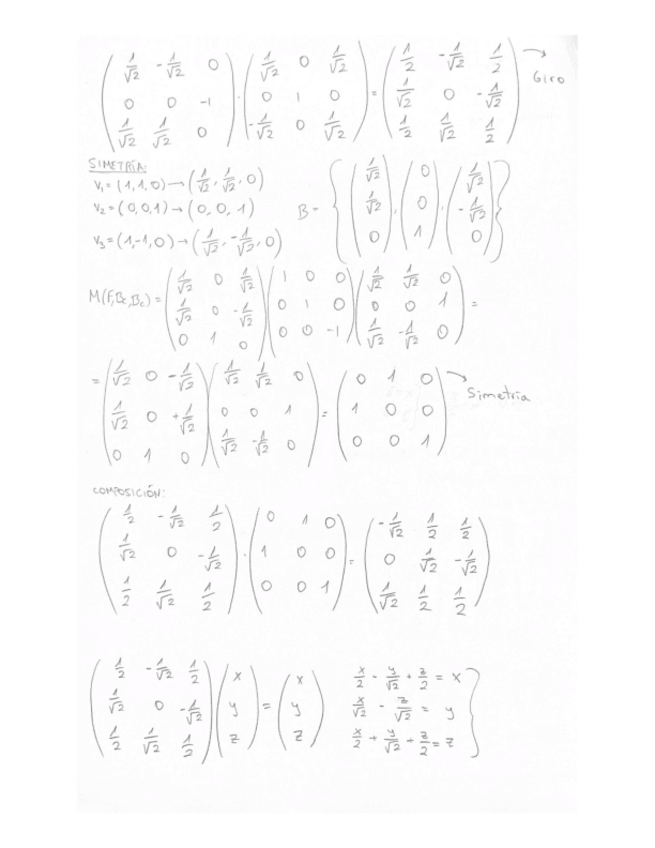 ( 1/√2 -1/√2 0 ; 0 0 -1 ; 1/√2 1/√2 0 ) · ( 1/√2 0 1/√2 ; 0 1 0 ; -1/√2 0 1/√2 ) = ( 1/2 -1/√2 1/2 ; 1/√2 0 -1/√2 ; 1/2 1/√2 1/2 ) → Giro
SIMETRÍA:
v₁ = (1,1,0) → (1/√2, 1/√2, 0)
v₂ = (0,0,1) → (0, 0, 1)
v₃ = (1,-1,0) → (1/√2, -1/√2, 0)
B = { ( 1/√2 ; 1/√2 ; 0 ), ( 0 ; 0 ; 1 ), ( 1/√2 ; -1/√2 ; 0 ) }
M(F,Bc,Bc) = ( 1/√2 0 1/√2 ; 1/√2 0 -1/√2 ; 0 1 0 ) ( 1 0 0 ; 0 1 0 ; 0 0 -1 ) ( 1/√2 1/√2 0 ; 0 0 1 ; 1/√2 -1/√2 0 ) =
= ( 1/√2 0 -1/√2 ; 1/√2 0 +1/√2 ; 0 1 0 ) ( 1/√2 1/√2 0 ; 0 0 1 ; 1/√2 -1/√2 0 ) = ( 0 1 0 ; 1 0 0 ; 0 0 1 ) → Simetria
COMPOSICIÓN:
( 1/2 -1/√2 1/2 ; 1/√2 0 -1/√2 ; 1/2 1/√2 1/2 ) · ( 0 1 0 ; 1 0 0 ; 0 0 1 ) = ( -1/√2 1/2 1/2 ; 0 1/√2 -1/√2 ; 1/√2 1/2 1/2 )
( 1/2 -1/√2 1/2 ; 1/√2 0 -1/√2 ; 1/2 1/√2 1/2 ) ( x ; y ; z ) = ( x ; y ; z )
x/2 - y/√2 + z/2 = x
x/√2 - z/√2 = y
x/2 + y/√2 + z/2 = z }